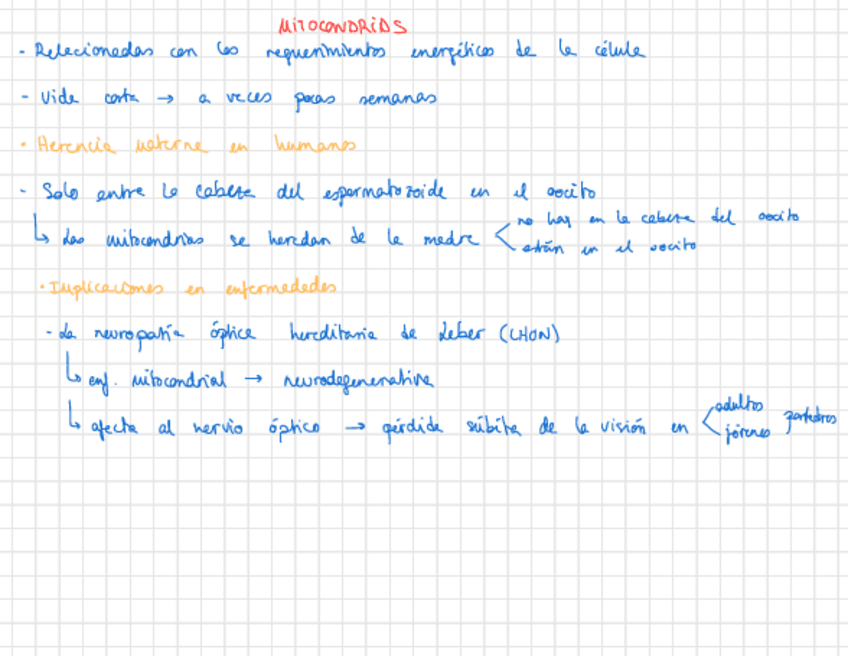 MITOCONDRIAS
- Relacionadas con los requerimientos energéticos de la célula
- Vida corta → a veces pocas semanas
· Herencia materna en humanos
- Solo entra la cabeza del espermatozoide en el oocito
↳ Las mitocondrias se heredan de la madre < no hay en la cabeza del oocito
están en el oocito
· Implicaciones en enfermedades
- La neuropatía óptica hereditaria de Leber (LHON)
↳ enf. mitocondrial → neurodegenerativa
↳ afecta al nervio óptico → pérdida súbita de la visión en < adultos
jóvenes